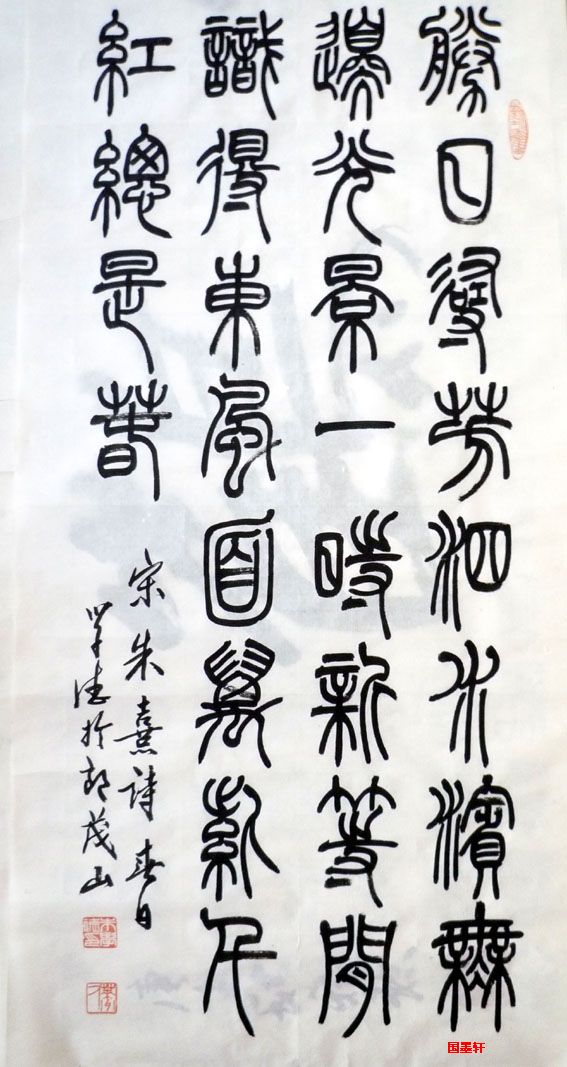 勝日尋芳泗水濱無
邊光景一時新等閒
識得東風面萬紫千
紅總是春
宋朱熹詩春日
学德於郎茂山
国墨轩